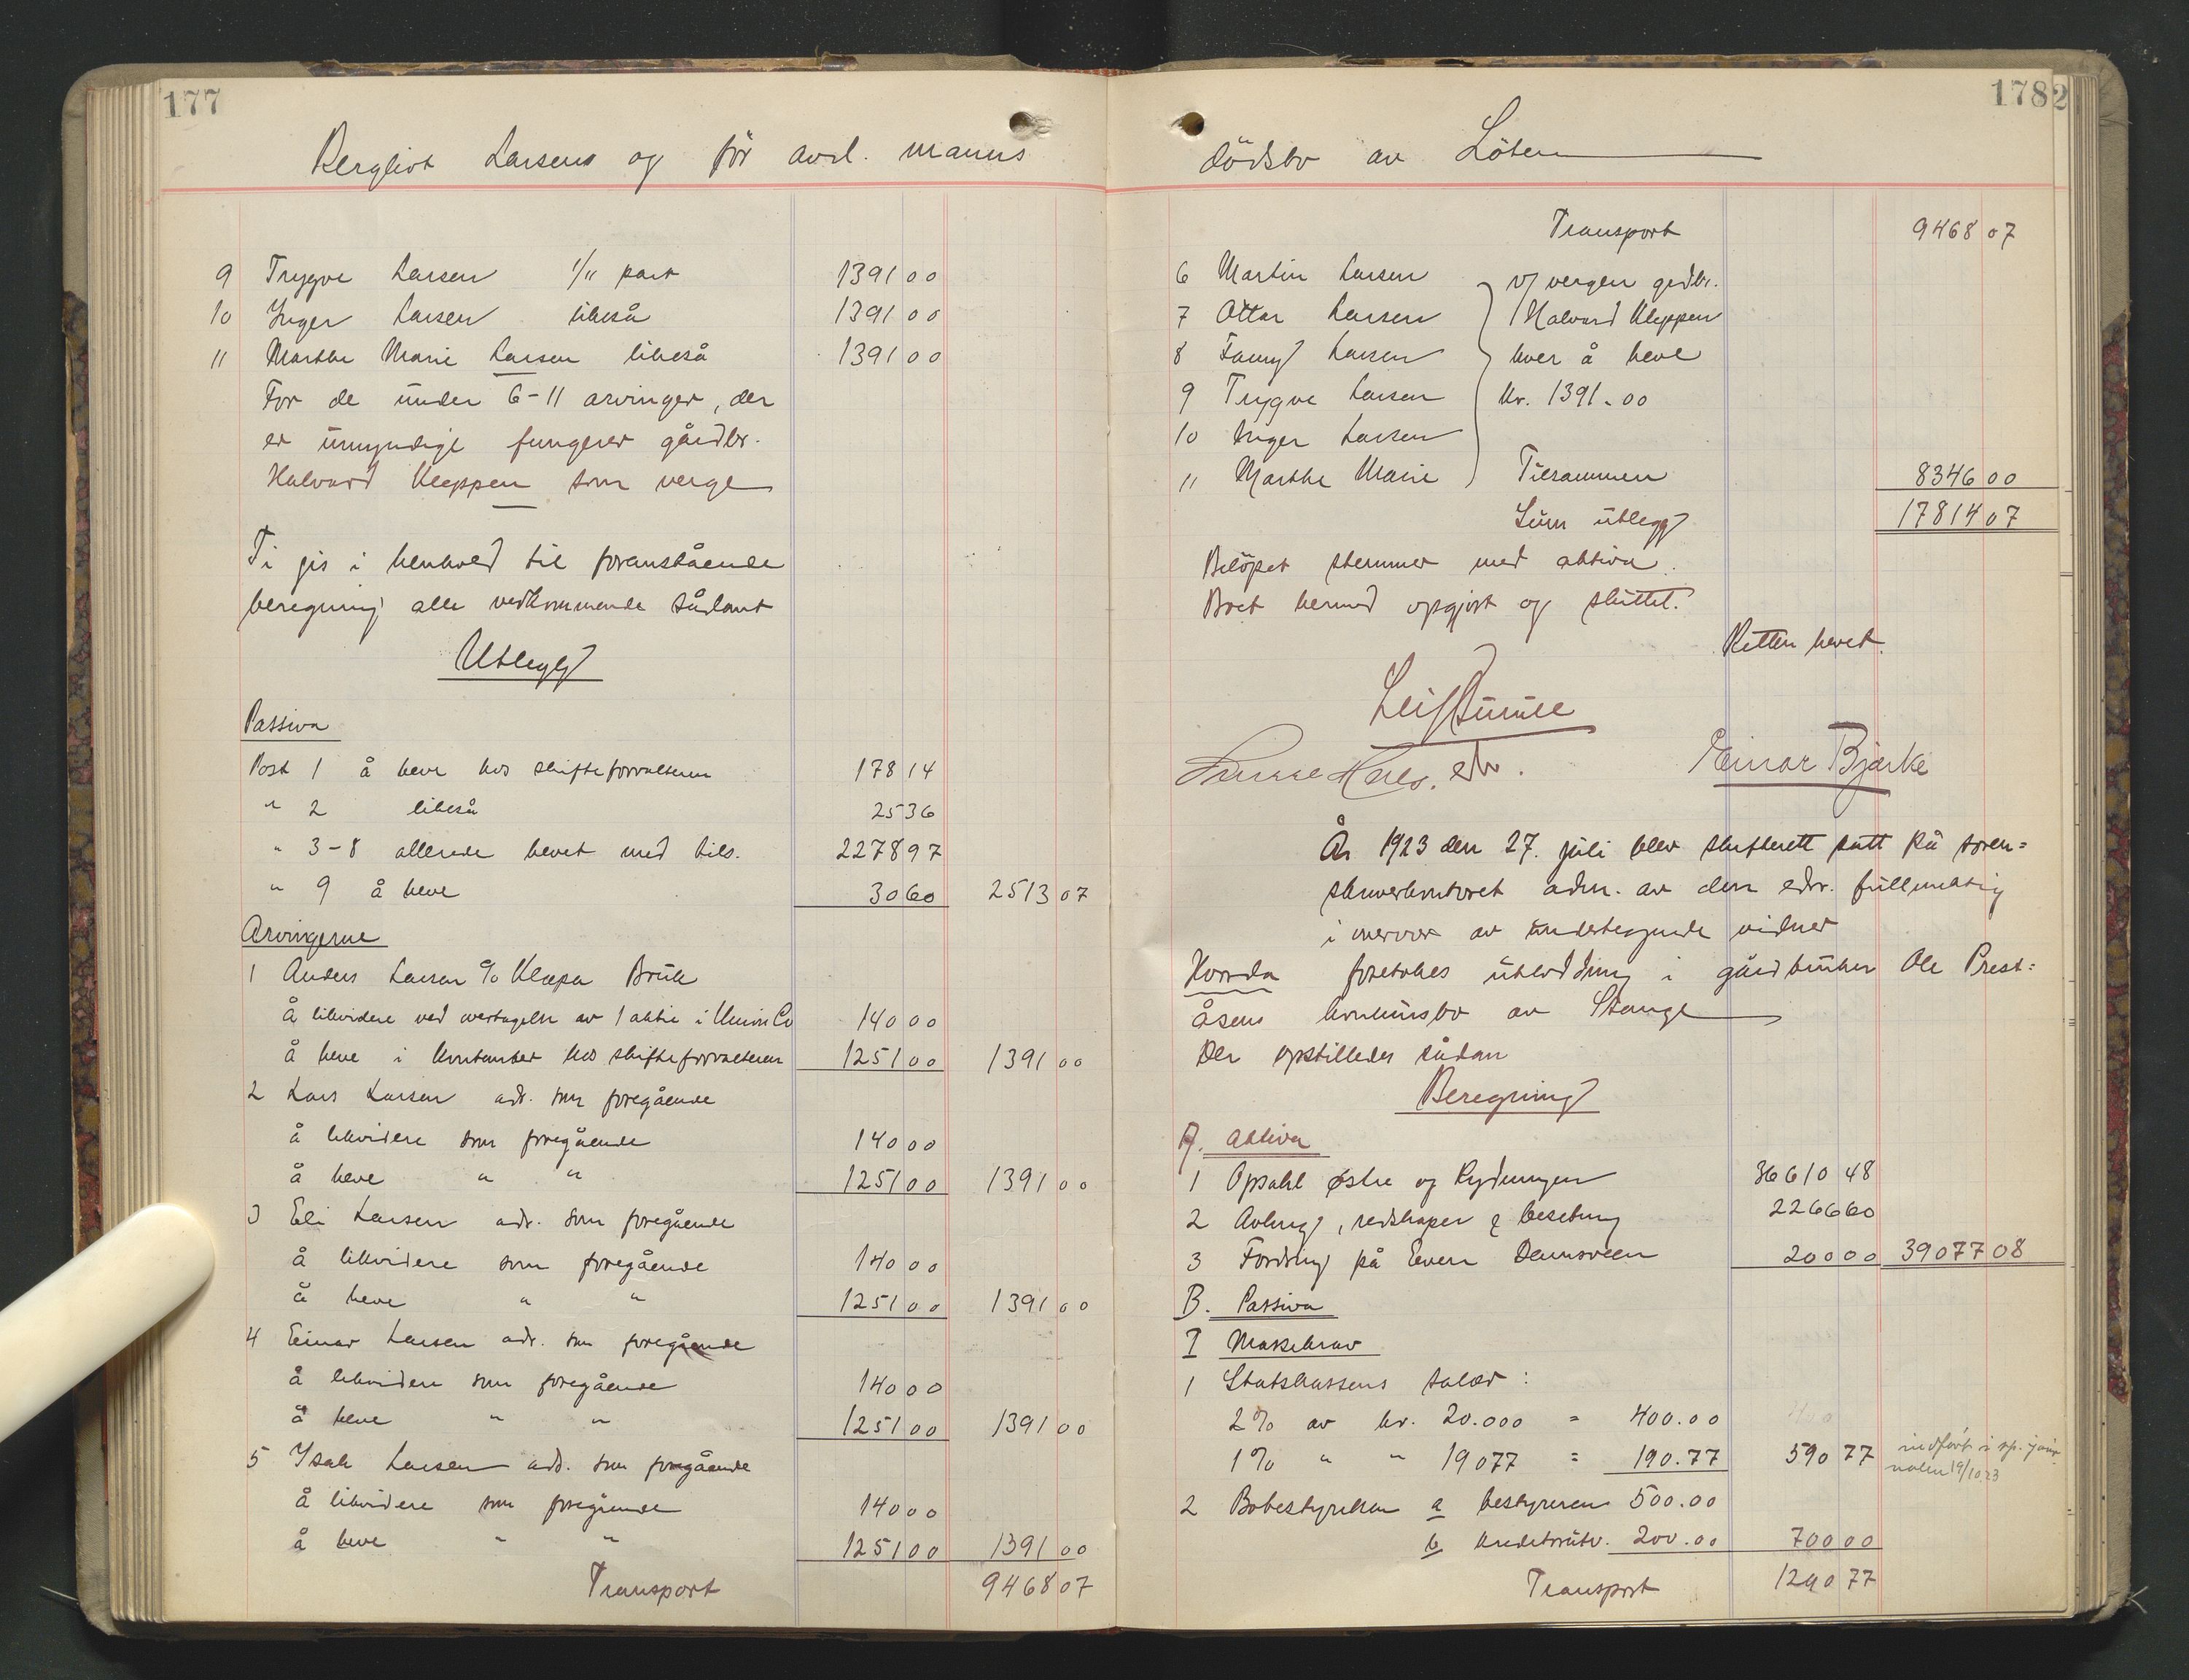 177
Bergliot Larsens og før avd. manns
9 Trygve Larsen 1/11 part 1391 00
10 Inger Larsen likeså 1391 00
11 Marthe Marie Larsen likeså 1391 00
For de under 6-11 arvinger, der
er umyndige fungerer gårdbr.
Halvard Kleppen som verge
Ti gis i henhold til foranstående
beregning alle vedkommende sådant
Utlegg
Passiva
Post 1 å heve hos skifteforvalteren 178 14
" 2 likeså 25 36
" 3-8 allerede hevet med tils. 2278 97
" 9 å heve 30 60 2513 07
Arvingerne
1 Anders Larsen c/o Klæpa Bruk
Å likvidere ved overtagelse av 1 aktie i Union Co 140 00
å heve i kontanter hos skifteforvalteren 1251 00 1391 00
2 Lars Larsen adr. som foregående
å likvidere som foregående 140 00
å heve " " 1251 00 1391 00
3 Eli Larsen adr. som foregående
å likvidere som foregående 140 00
å heve " " 1251 00 1391 00
4 Einar Larsen adr. som foregående
å likvidere som foregående 140 00
å heve " " 1251 00 1391 00
5 Isak Larsen adr. som foregående
å likvidere som foregående 140 00
å heve " " 1251 00 1391 00
Transport 9468 07
1782
dödsbo av Löten
Transport 9468 07
6 Martin Larsen v/ vergen grdbr.
7 Ottar Larsen Halvard Kleppen
8 Fanny Larsen hver å heve
9 Trygve Larsen kr. 1391.00
10 Inger Larsen
11 Marthe Marie Tilsammen 8346 00
Sum utlegg 17814 07
Belöpet stemmer med aktiva.
Boet hermed opgjort og sluttet.
Retten hevet.
edr. Einar Bjørke
År 1923 den 27. juli blev skifterett satt på soren=
skriverkontoret adm. av den edsv. fullmektig
i overvær av undertegnede vidner
Hvorda foretokes utlodding i gårdbruker Ole Prest=
åsens konkursbo av Stange
Der opstilledes sådan
Beregning
A. Aktiva
1 Opsahl østre og Rydningen 36610 48
2 Avling, redskaper & besetning 2266 60
3 Fordring på Even Damsveen 200 00 39077 08
B. Passiva
I Massekrav
1 Statskassens salær:
2% av kr. 20.000 = 400.00
1% " " 19077 = 190.77 590 77 indført i sp. jour
nalen 19/10.23
2 Bobestyrelsen a bestyreren 500.00
b kreditorutv. 200.00 700 00
Transport 1290 77